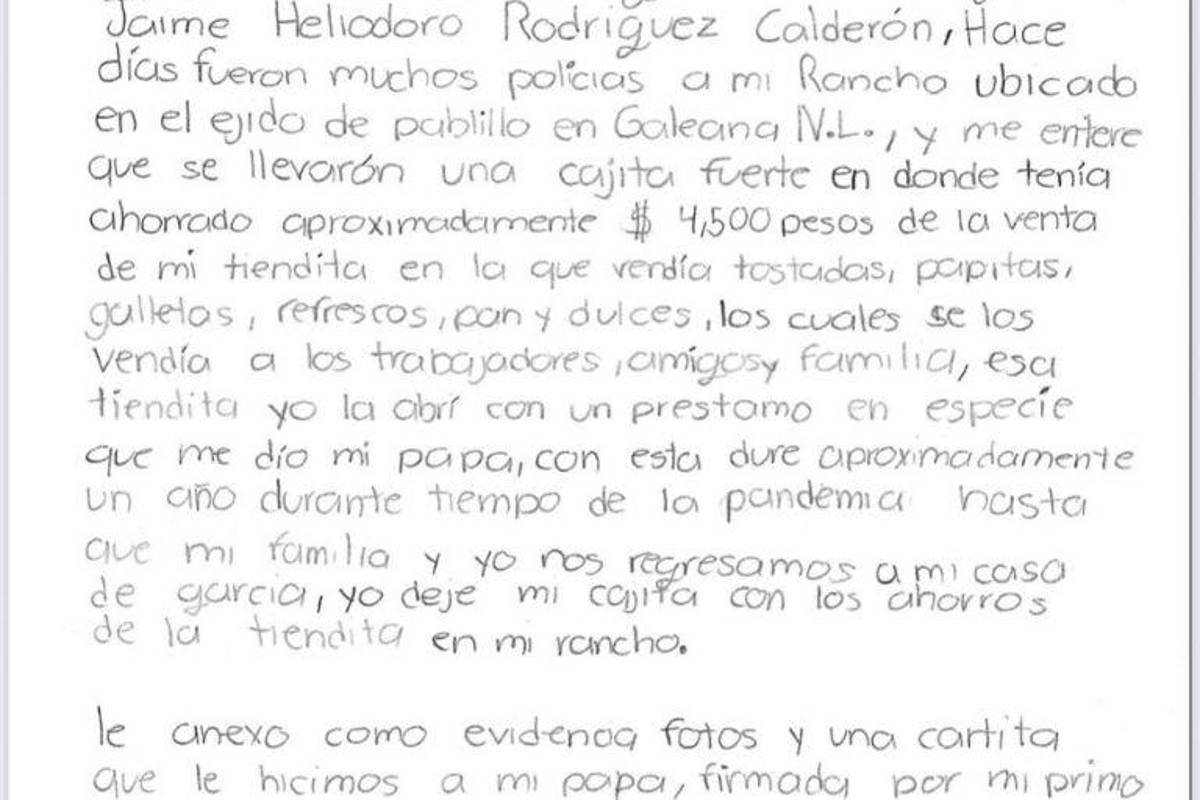 Jaime Heliodoro Rodríguez Calderón, Hace
días fueron muchos policias a mi Rancho ubicado
en el ejido de pablillo en Galeana N.L., y me entere
que se llevarón una cajita fuerte en donde tenía
ahorrado aproximadamente $ 4,500 pesos de la venta
de mi tiendita en la que vendía tostadas, papitas,
galletas, refrescos, pan y dulces, los cuales se los
vendía a los trabajadores, amigos y familia, esa
tiendita yo la abrí con un prestamo en especie
que me dío mi papa, con esta dure aproximadamente
un año durante tiempo de la pandemia hasta
que mi familia y yo nos regresamos a mi casa
de garcia, yo deje mi cajita con los ahorros
de la tiendita en mi rancho.
le anexo como evidencia fotos y una cartita
que le hicimos a mi papa, firmada por mi primo